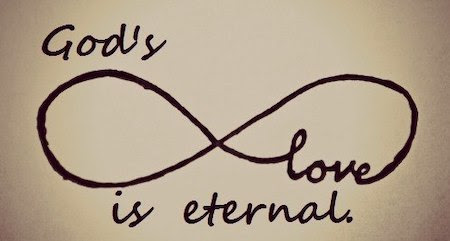 God's
love
is eternal.